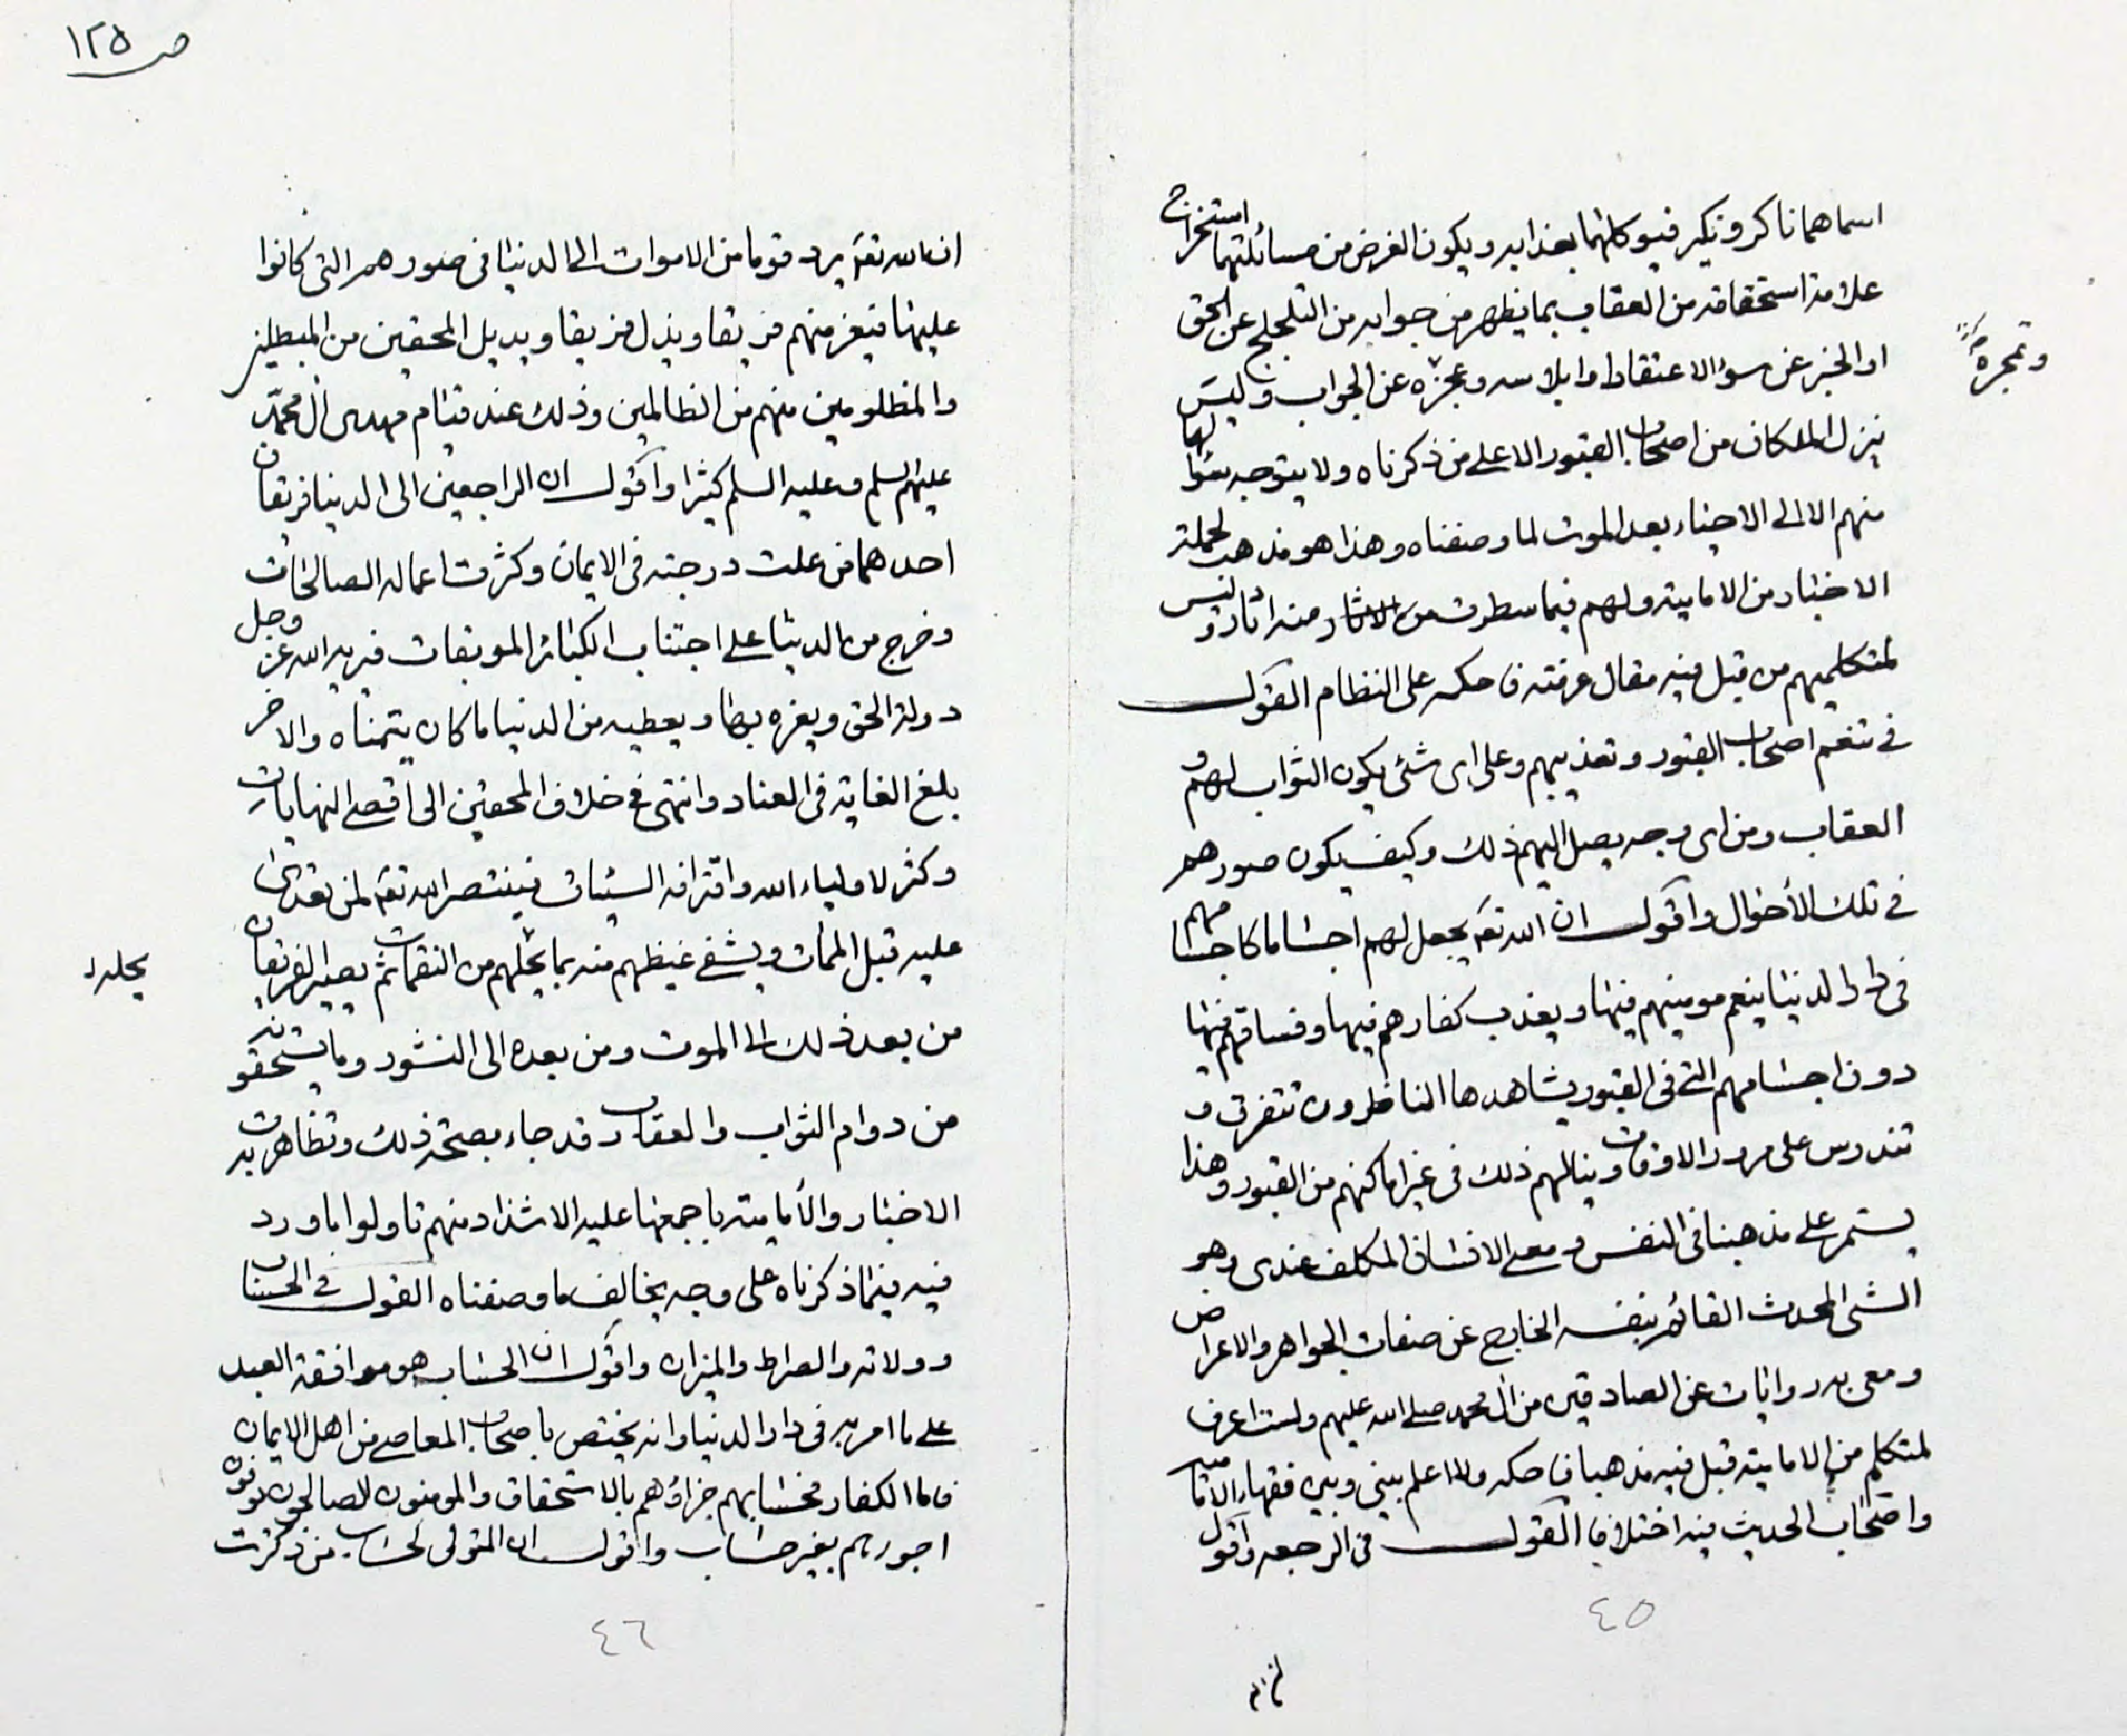 اسماهما ناكر ونكير فيوكلهما بعذابه ويكون الغرض من مسائلتهما استخراج
علامة استحقاقه من العقاب بما يظهر من جوابه من التلجلج عن الحق
او الخبر عن سوء الاعتقاد او ابلاسه وعجزه عن الجواب وليس
ينزل الملكان من اصحاب القبور الا على من ذكرناه ولا يتوجه سؤالهما
منهم الا الى الاحياء بعد الموت لما وصفناه وهذا هو مذهب لحملة
الاخبار من الامامية ولهم فيما سطرت منه اثار وليس
لمتكلميهم من قبل فيه مقال عرفته فاحكيه على النظام القول
في تنعم اصحاب القبور وتعذيبهم وعلى اى شئ يكون الثواب لهم و
العقاب ومن اى وجه يصل اليهم ذلك وكيف يكون صورهم
في تلك الأحوال واقول ان الله تعه يجعل لهم اجساما كاجسامهم
فى دار الدنيا ينعم مومنيهم فيها ويعذب كفارهم فيها وفساقهم فيها
دون اجسامهم التى فى القبور يشاهدها الناظرون تتفرق و
تندرس على مرور الاوقات وينالهم ذلك فى غير اماكنهم من القبور وهذا
يستمر على مذهبنا فى النفس و معنى الانسان المكلف عندى وهو
الشئ المحدث القائم بنفسه الخارج عن صفات الجواهر والاعراض
ومعى به روايات عن الصادقين من ال محمد صلى الله عليهم ولست اعرف
لمتكلم من الامامية قبل فيه مذهبا فاحكيه ولا اعلم بينى وبين فقهاء الامامية
واصحاب الحديث فيه اختلافا القول فى الرجعه واقول
وتمجره
٤٥
ص ١٢٥
ان الله تعه يرد قوما من الاموات الى الدنيا فى صورهم التى كانوا
عليها فيعز منهم فريقا ويذل فريقا ويديل المحقين من المبطلين
والمظلومين منهم من الظالمين وذلك عند قيام مهدى ال محمد
عليهم السلم وعليه السلم كثيرا واقول ان الراجعين الى الدنيا فريقان
احدهما من علت درجته فى الايمان وكثرت اعماله الصالحات
وخرج من الدنيا على اجتناب الكبائر الموبقات فيريه الله عز وجل
دولة الحق ويعزه بها ويعطيه من الدنيا ما كان يتمناه والاخر
بلغ الغاية فى العناد وانتهى فى خلاف المحقين الى اقصى النهايات
وكثر لاولياء الله واقترافه السيئات فينتصر الله تعه لمن تعدى
عليه قبل الممات ويشفى غيظهم منه بما يحلهم من النقمات ثم يصير الفريقان
من بعد ذلك الى الموت ومن بعده الى النشور وما يستحقونه
من دوام الثواب والعقاب وقد جاء بصحة ذلك وتظاهرت به
الاخبار والأمامية باجمعها عليه الا شذاذ منهم تاولوا ما ورد
فيه فيما ذكرناه على وجه يخالف ما وصفناه القول فى الحساب
وولاته والصراط والميزان واقول ان الحساب هو موافقة العبد
على ما امر به فى دار الدنيا وانه يختص باصحاب المعاصى من اهل الايمان
فاما الكفار فحسابهم جزاؤهم بالاستحقاق والمومنون الصالحون يوفون
اجورهم بغير حساب واقول ان المتولى لحساب من ذكرت
يحله
٤٦